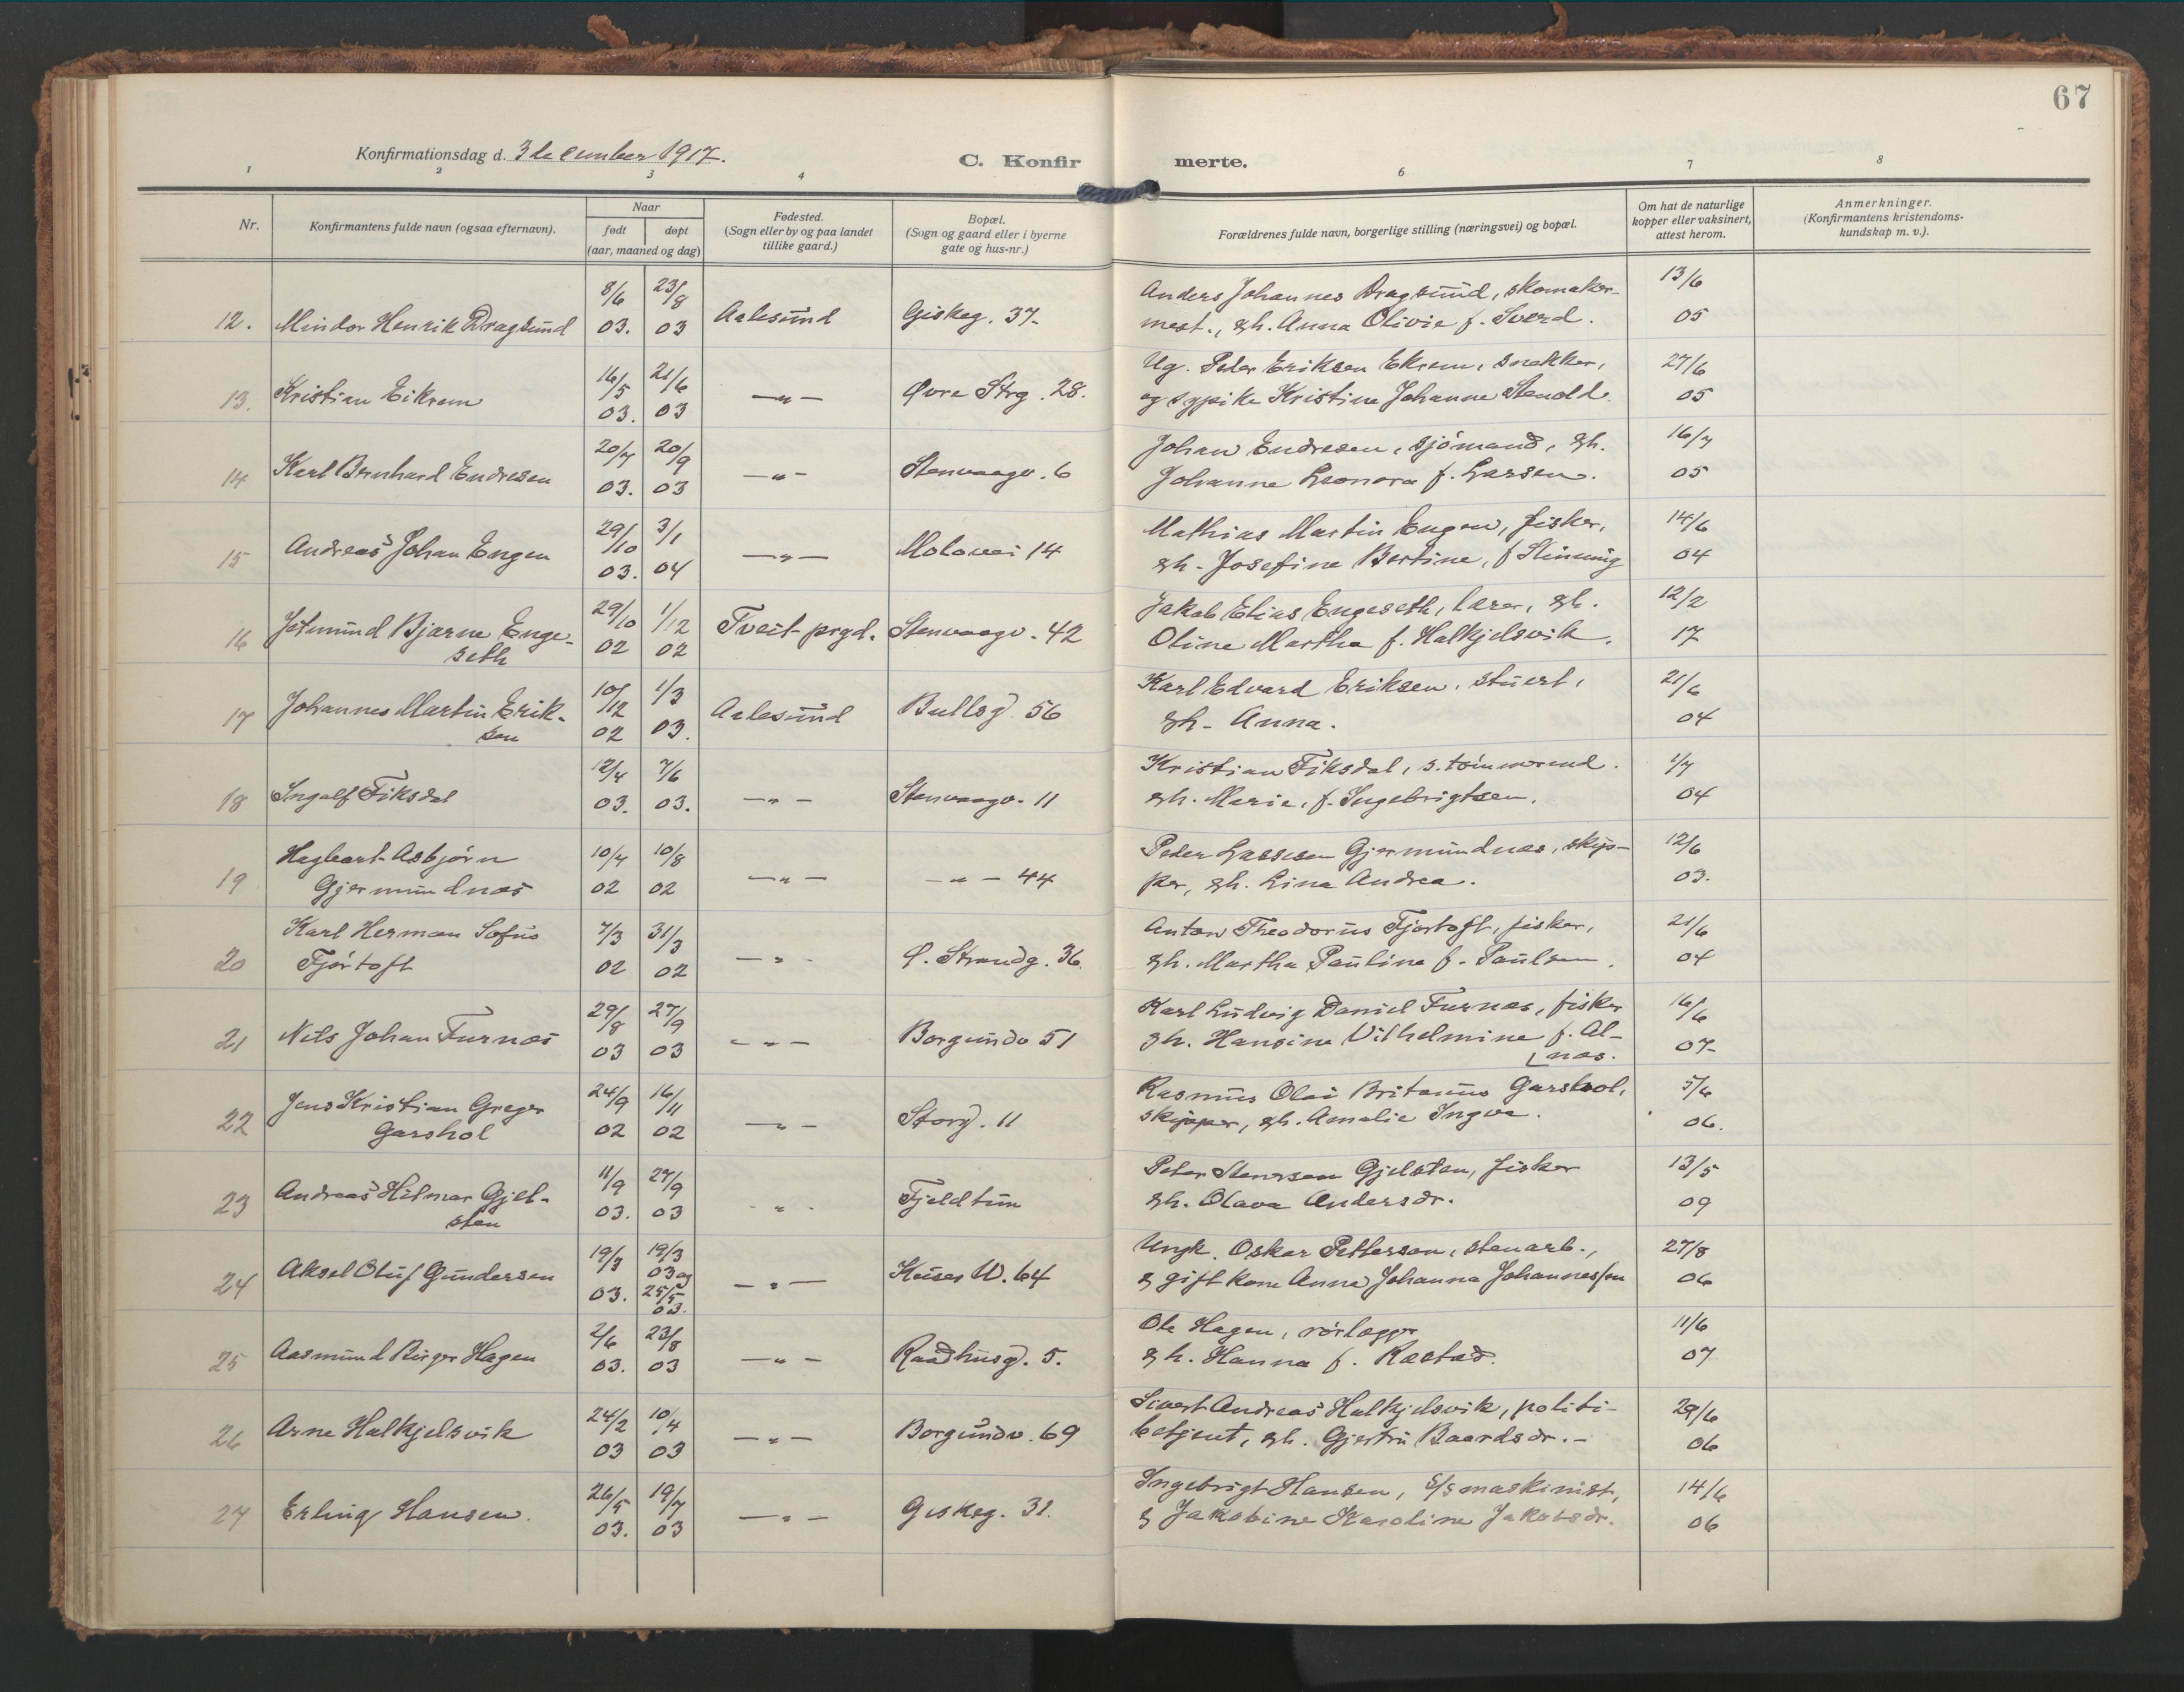 67
Konfirmationsdag d. 3 december 1917.
C. Konfirmerte.
1 2 3 4 6 7 8
Nr.
Konfirmantens fulde navn (ogsaa efternavn).
Naar
født døpt
(aar, maaned og dag)
Fødested.
(Sogn eller by og paa landet
tillike gaard.)
Bopæl.
(Sogn og gaard eller i byerne
gate og hus-nr.)
Forældrenes fulde navn, borgerlige stilling (næringsvei) og bopæl.
Om hat de naturlige
kopper eller vaksinert,
attest herom.
Anmerkninger.
(Konfirmantens kristendoms-
kundskap m. v.).
8/6 23/8 Anders Johannes Dragsund, skomaker- 13/6
12. Mindor Henrik Dragsund 03. 03 Aalesund Giskeg. 37- mest., gh. Anna Olivie f. Sverd. 05
16/5 21/6 Ug. Peter Eriksen Ekrem, snekker, 27/6
13. Kristian Eikrem 03. 03 —„— Øvre Strg. 28. og sypike Kristine Johanne Stenold. 05
20/7 20/9 Johan Endresen, sjömand, gh. 16/7
14 Karl Bernhard Endresen 03. 03 —„— Stenvaagv. 6 Johanne Leonora f. Larsen. 05
29/10 3/1 Mathias Martin Engen, fisker, 14/6
15 Andreas Johan Engen 03. 04 —„— Molovei 14 gh. Josefine Bertine, f 04
29/10 1/12 Jakob Elias Engeseth, lærer, gh. 12/2
16 Jetmund Bjarne Enge-
seth 02 02 Tveit prgd. Stenvaagv. 42 Oline Martha f. Halkjelsvik. 17
10/12 1/3 Karl Edvard Eriksen, stuert, 21/6
17 Johannes Martin Erik-
sen 02 03. Aalesund Bullsg. 56 gh. Anna. 04
12/4 7/6 Kristian Fiksdal, s. tömmermd. 1/7
18 Ingolf Fiksdal 03. 03. —„— Stenvaagv. 11 gh. Marie, f. Ingebrigtsen. 04
Hagbart Asbjørn 10/7 10/8 Peder Lassesen Gjermundnæs, skip- 12/6
19 Gjermundnæs 02 02 —„— —„— 44 per, gh. Lina Andrea. 03.
Karl Herman Sofus 7/3 31/3 Anton Theodorus Fjørtoft, fisker, 21/6
20 Fjörtoft 02 02 —„— Ø. Strandg. 36 gh. Martha Pauline f. Paulsen. 04
29/8 27/9 Karl Ludvig Daniel Furnæs, fisker 16/6
21 Nils Johan Furnæs 03 03 —„— Borgundv 51 gh. Hansine Vilhelmine f. Al-
næs. 07-
Jens Kristian Greger 24/9 16/11 Rasmus Olai Britanus Garshol, 5/6
22 Garshol 02 02 —„— Storg. 11 skipper, gh. Amalie Ingva. 06.
11/9 27/9 Peter Stensen Gjelsten, fisker 13/5
23 Andreas Hilmar Gjel-
sten 03. 03 —„— Fjeldtun gh. Olava Andersdr. 09
19/3 19/3 Ungk. Oskar Pettersen, stenarb., 27/8
24 Aksel Oluf Gundersen 03. 03 og 25/5 03. —„— Keiser W. 64 & gift kone Anne Johanna Johannessen 06
2/6 23/8 Ole Hagen, rörlægger 11/6
25 Aasmund Birger Hagen 03. 03 —„— Raadhusg. 5. gh. Hanna f. Rastad. 07
24/2 10/4 Sivert Andreas Halkjelsvik, politi- 29/6
26 Arne Halkjelsvik 03 03 —„— Borgundv. 69 betjent, gh. Gjertru Baardsdr.- 06
26/5 19/7 Ingebrigt Hansen, S/s maskinist, 14/6
27 Erling Hansen. 03. 03 —„— Giskeg. 31. & Jakobine Karoline Jakobsdr. 06